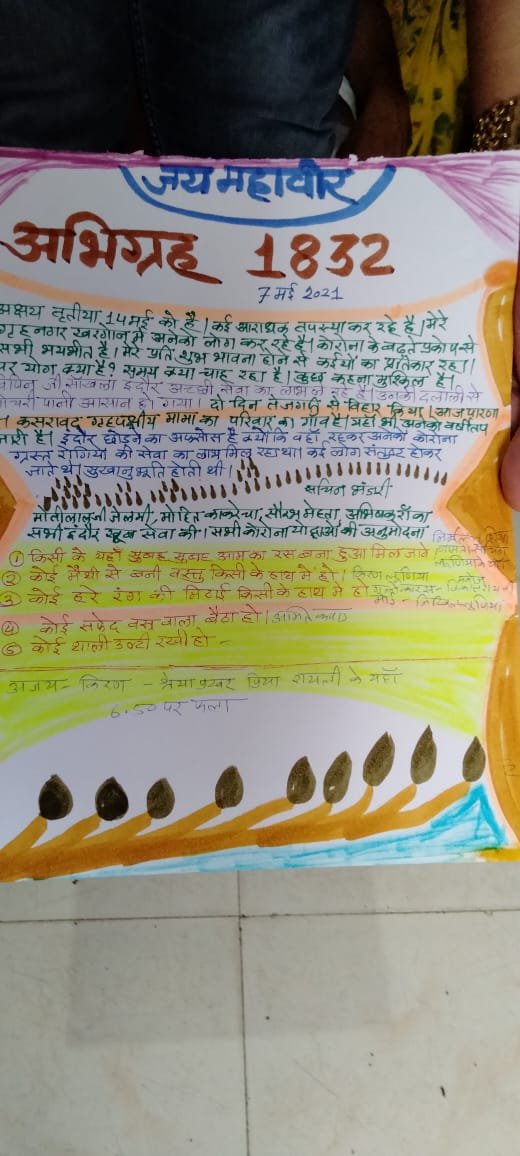 जय महावीर
अभिग्रह 1832
7 मई 2021
अक्षय तृतीया 14 मई को है। कई आराधक तपस्या कर रहे है। मेरे
गृह नगर खरगोन में अनेको लोग कर रहे है। कोरोना के बढ़ते प्रकोप से
सभी भयभीत है। मेरे प्रति शुभ भावना होने से कईयों का प्रतिकार रहा।
पर योग क्या है? समय क्या चाह रहा है। कुछ कहना मुश्किल है।
जी सांखला इंदौर अच्छी सेवा का लाभ ले रहे है। उनकी दलाली से
गोचरी पानी आसान हो गया। दो दिन तेजगति से विहार किया। आज पारणा
कसरावद गृहपक्षीय मामा का परिवार का गांव है। यहां भी अनेको वर्षीतप
है। इंदौर छोड़ने का अफसोस है क्यो कि वहाँ रहकर अनेको कोरोना
ग्रस्त रोगियों की सेवा का लाभ मिल रहा था। कई लोग संतुष्ट होकर
जाते थे। सुखानुभूति होती थी।
सचिन भंडारी
मोतीलालजी जेलमी, मोहित कांकरेचा, सौरभ मेहता अभिषेक का
सभी इंदौर खूब सेवा की। सभी कोरोना योद्धाओ की अनुमोदना
① किसी के यहाँ सुबह सुबह आम का रस बना हुआ मिल जावे
② कोई मैथी से बनी वस्तु किसी के हाथ में हो। किरण लुणिया
③ कोई हरे रंग की मिठाई किसी के हाथ मे हो
④ कोई सफेद वस्त्र वाला बैठा हो।
⑤ कोई थाली उल्टी रखी हो -
अजय - किरण - श्रेया प्रखर प्रिया रायली के यहाँ
6.50 पर फला